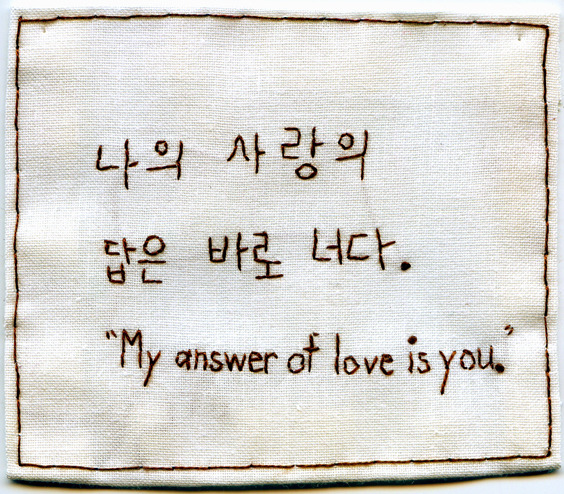 나의 사랑의
답은 바로 너다.
"My answer of love is you."